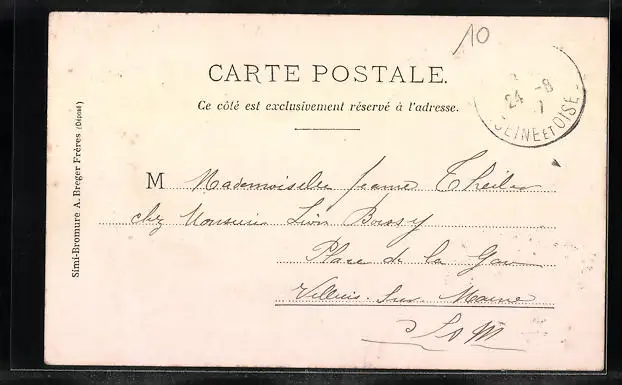 10
CARTE POSTALE.
Ce côté est exclusivement réservé à l'adresse.
24 -8
SEINE ET OISE
M Mademoiselle Jeanne
chez Monsieur Léon Boissy
Place de la Gare
Villiers-sur-Marne
S & M
Simi-Bromure A. Breger Frères (Déposé)